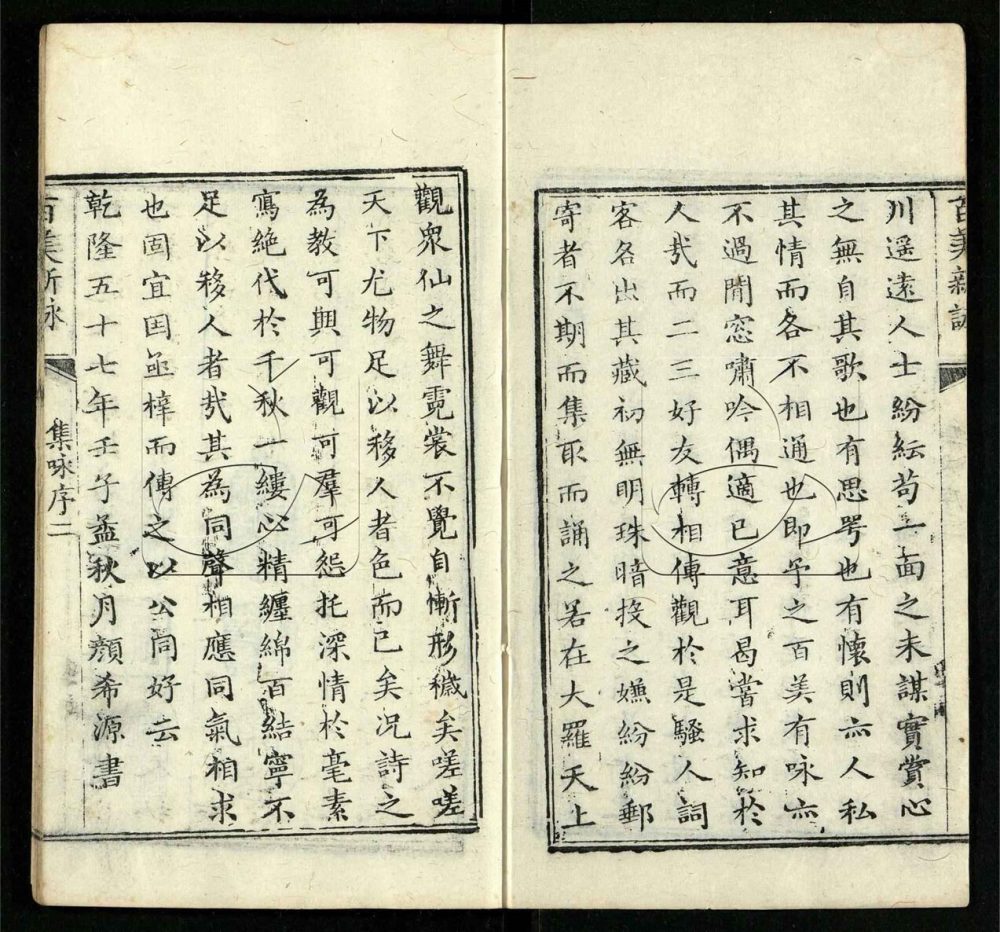 百美新詠
川遥遠人士紛紜苟一面之未謀實賞心
之無自其歌也有思咢也有懷則亦人私
其情而各不相通也即予之百美有咏亦
不過閒窓嘯吟偶適已意耳曷嘗求知於
人㢤而二三好友轉相傳觀於是騷人詞
客各出其藏初無明珠暗投之嫌紛紛郵
寄者不期而集取而誦之若在大羅天上
觀衆仙之舞霓裳不覺自慚形穢矣嗟嗟
天下尤物足以移人者色而已矣况詩之
為教可興可觀可羣可怨托深情於毫素
寫絶代於千秋一縷心精纏綿百結寧不
足以移人者㢤其為同聲相應同氣相求
也固宜因亟梓而傳之以公同好云
乾隆五十七年壬子孟秋月顔希源書
百美新咏
集咏序二